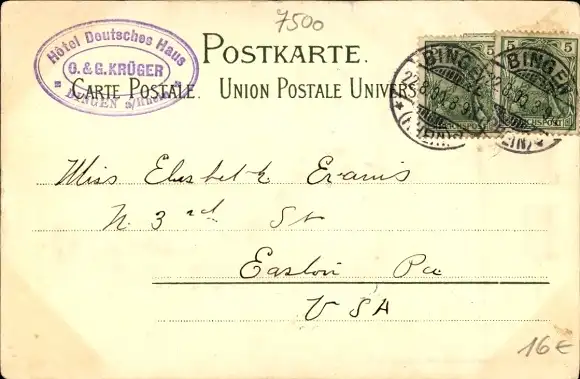 7500
Hôtel Deutsches Haus
O. & G. KRÜGER
BINGEN a/Rhein
POSTKARTE.
CARTE POSTALE. UNION POSTALE UNIVERS
5 5 5
BINGEN
BINGEN
(RHEIN)
REICHSPOST
Miss Elisbeth Evans
N 3rd St
Easton Pa
USA
16€